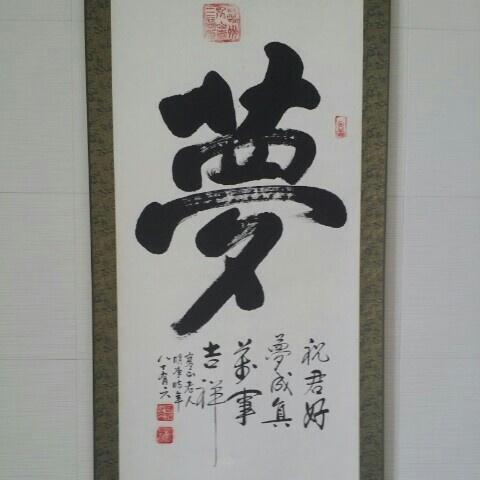 夢
祝君好
夢成真
萬事
吉祥
寒山老人
時年
八十有六